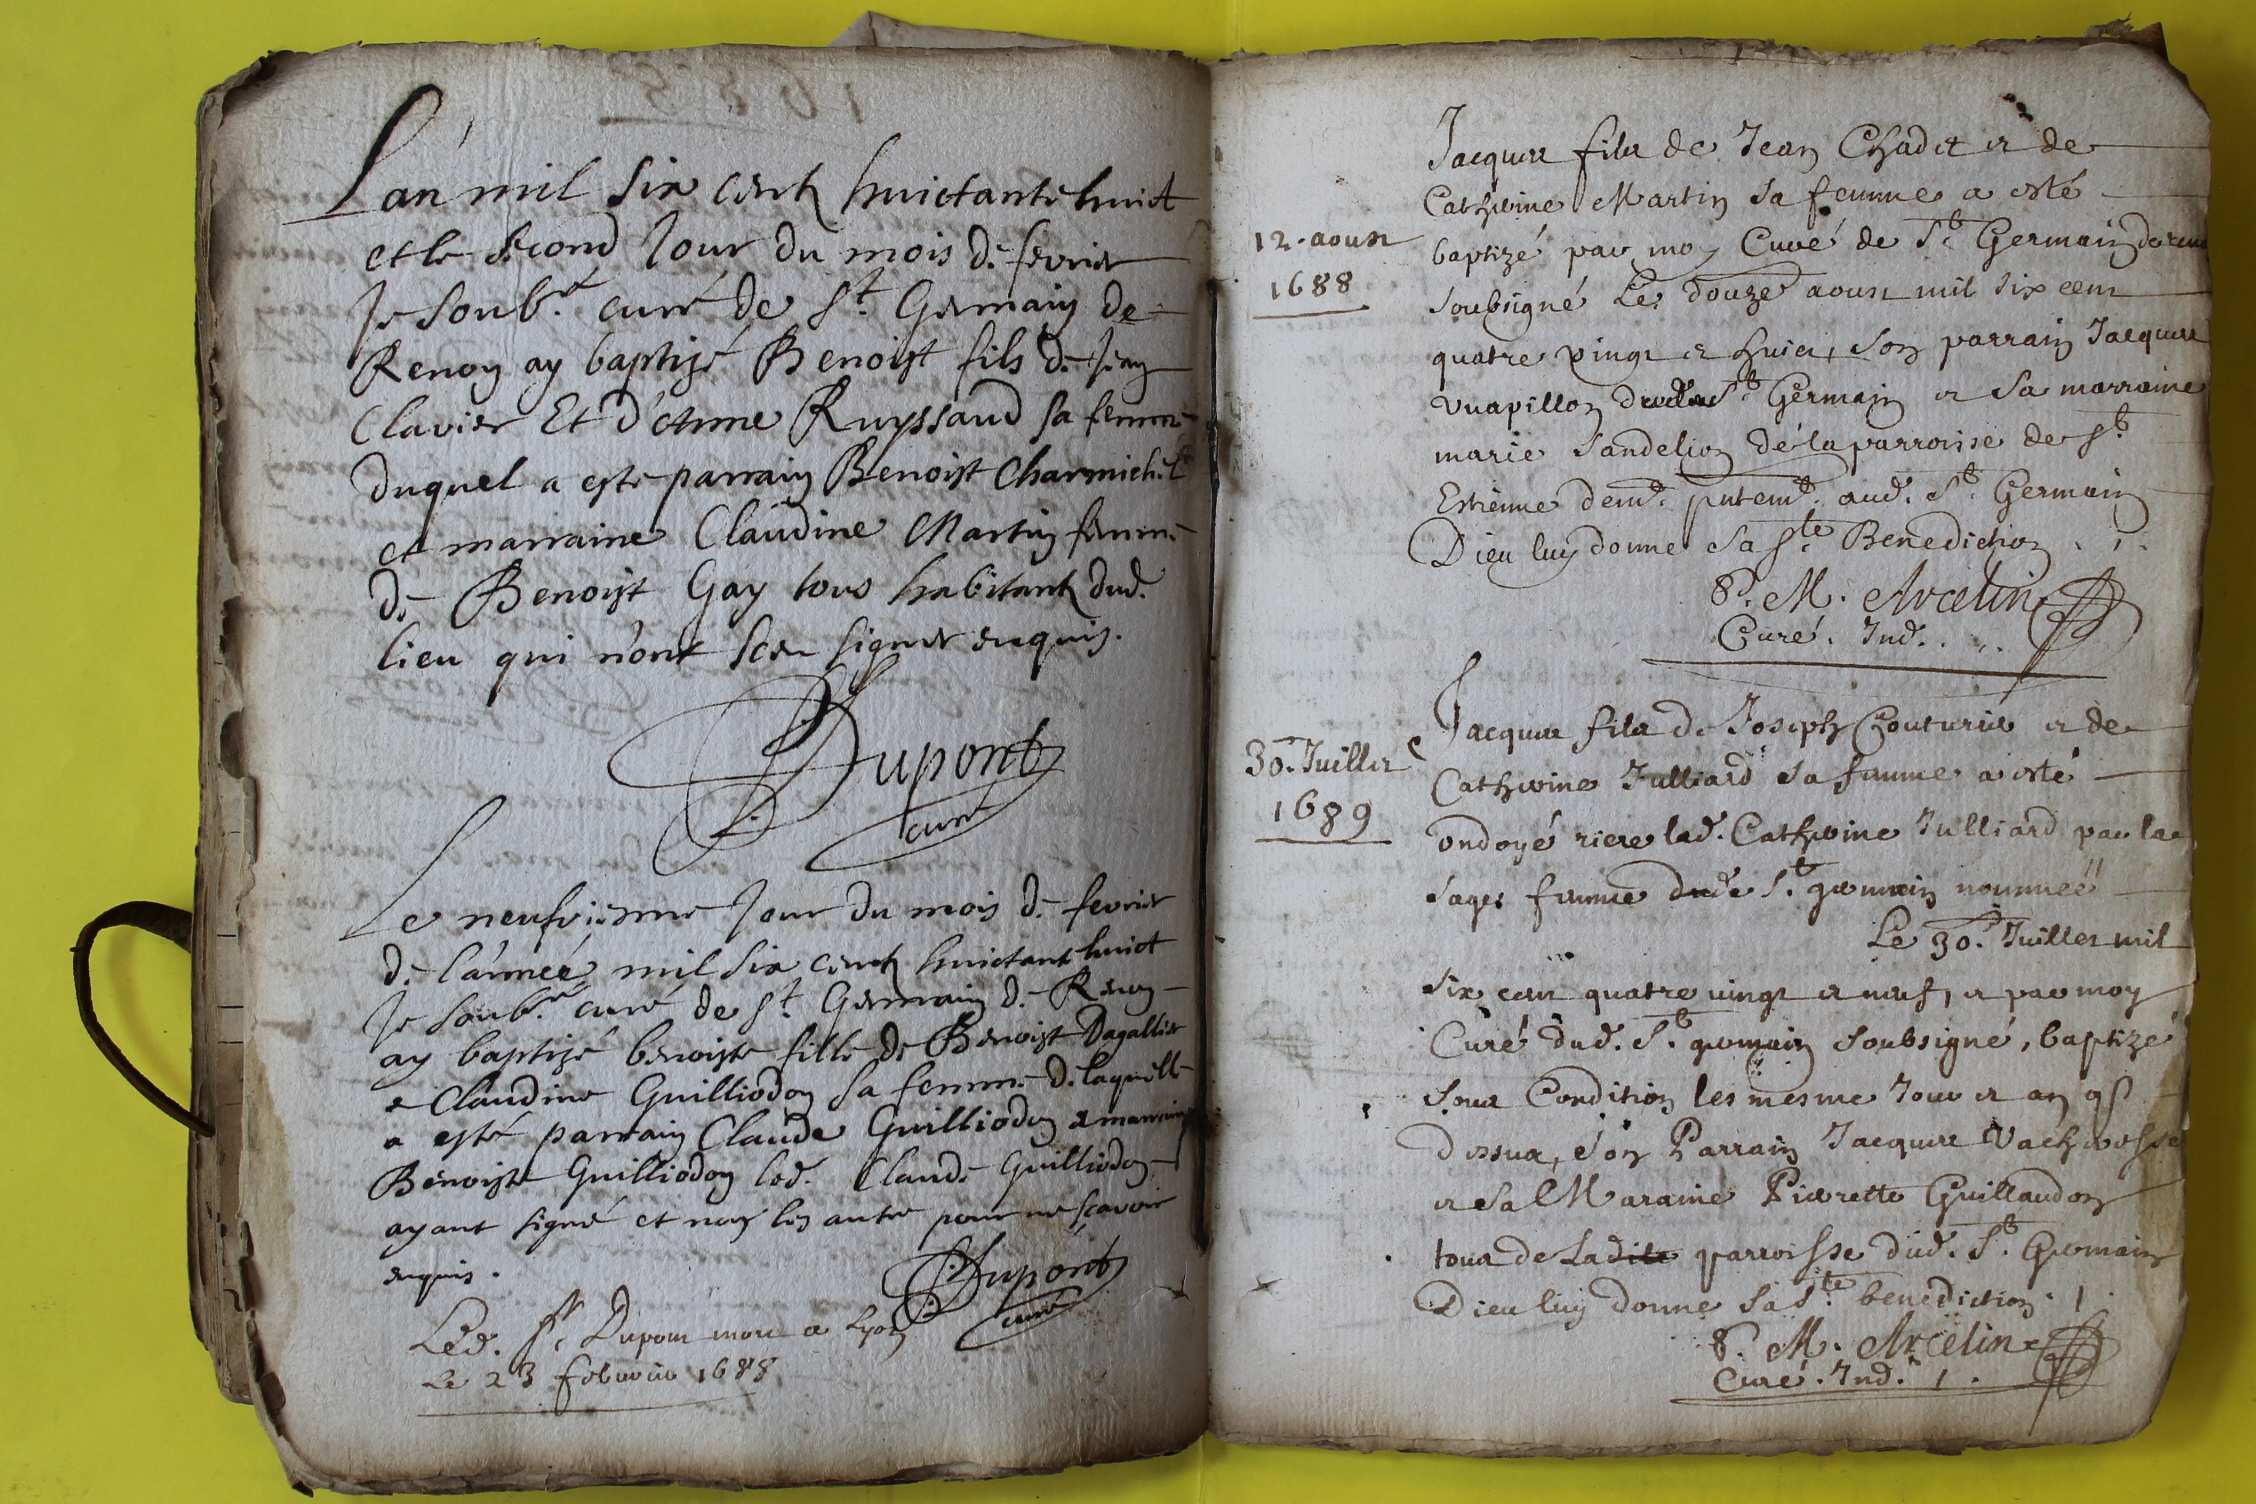 L'an mil six cents huictante huict
et le second Jour du mois de fevrier
Je soubné. curé de St. Germain de
Renon ay baptizé Benoist fils de Jean
Clavier Et d'Anne Ruyssaud sa femme
duquel a este parrain Benoist Charmichel
et marraine Claudine Martin femme
de Benoist Gay tous habitants dud.
lieu qui n'ont sceu signer enquis.
Dupont
curé
Le neufviesme Jour du mois de fevrier
de l'année mil six cents huictant huict
Je soubné. curé de St. Germain de Renon
ay baptizé benoiste fille de Benoist Dagallier
e Claudine Guilliodon sa femme de laquelle
a esté parrain Claude Guilliodon e marraine
Benoiste Guilliodon led. Claude Guilliodon
ayant signé et non les autre pour ne scavoir
enquis.
Dupont
curé
Led. Sr. Dupont mort a Lyon
Le 23 februier 1688
Jacques fils de Jean Chadet et de
Catherine Martin sa femme a esté
12. aoust
1688
baptizé par moy Curé de St. Germain de renon
soubsigné Le douze aoust mil six cens
quatre vingt et huict, son parrain Jacques
Vuapillon dud. St. Germain et sa marraine
marie Sandelion de la parroisse de St.
Estienne demt. putemt. aud. St. Germain
Dieu luy donne sa Ste Benediction
P. M. Arcelin
Curé. Ind.
Jacques fils de Joseph Couturier et de
30. Juillet
1689
Catherine Julliard sa femme a esté
ondoyé riere lad. Catherine Julliard par la
sages femme dud. St. germain nommeé
Le 30. Juillet mil
six cens quatre vingt et neuf, et par moy
Curé dud. St. germain soubsigné, baptizé
sous Condition les mesme Jour et an q
dessus, son Parrain Jacques
et sa Maraine Pierrette Guillaudon
tous de Ladite parroisse dud. St. Germain
Dieu luy donne sa Ste benediction.
P. M. Arcelin
Curé. Ind.